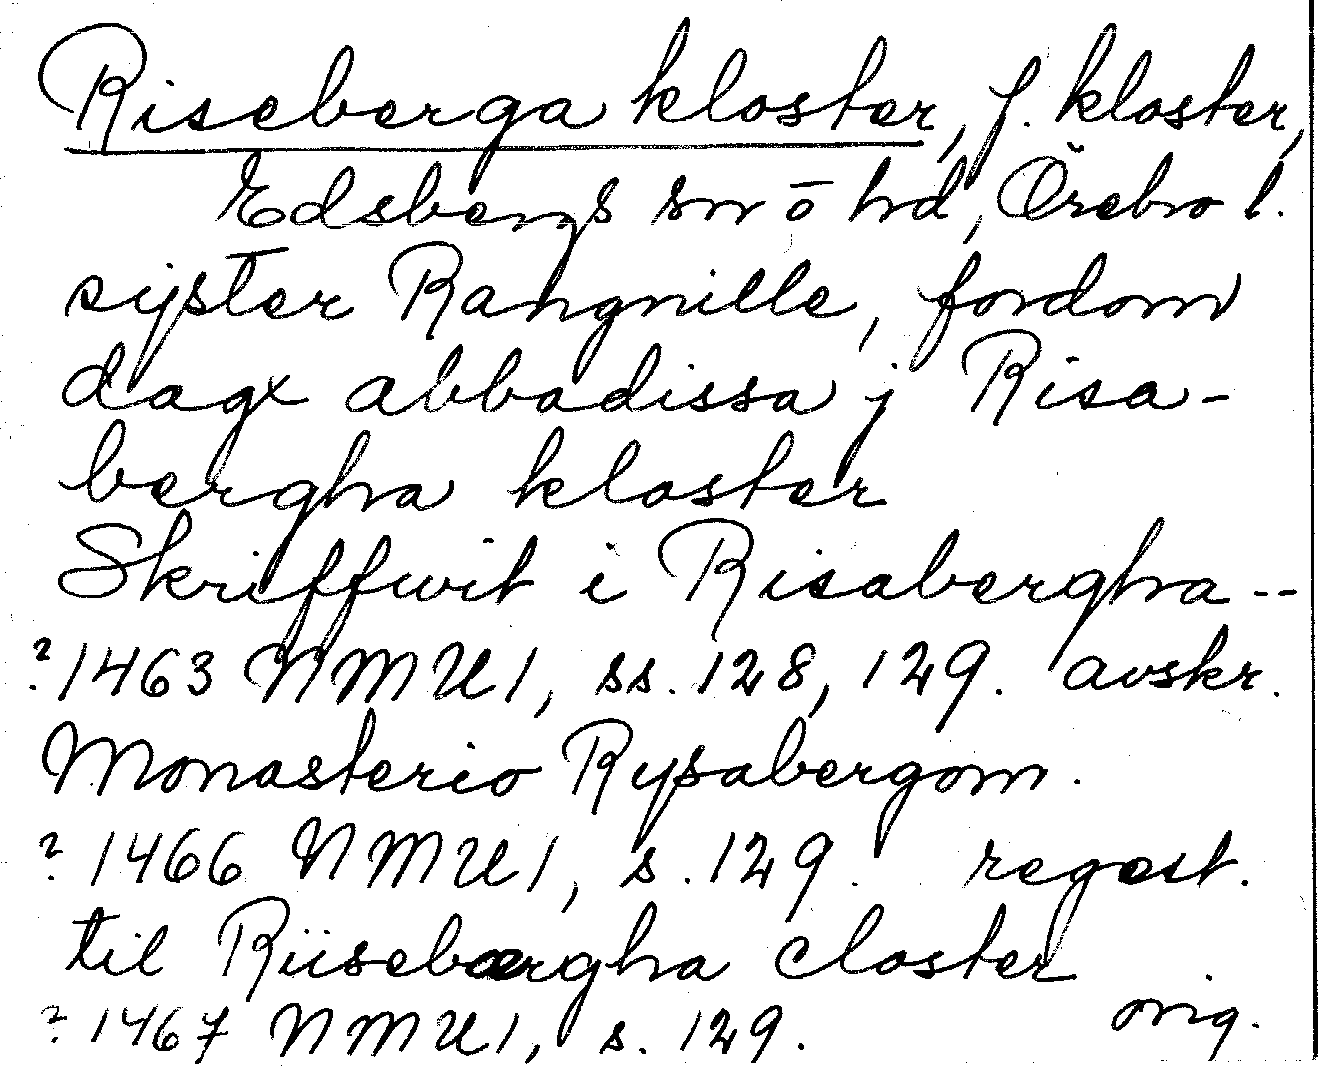 Riseberga kloster, f. kloster,
Edsbergs sn o hd, Örebro l.
syster Rangnille, fordom
dagx abbadissa j Risa-
bergha kloster
Skriffwit i Risabergha --
? 1463 NMU1, ss. 128, 129. avskr.
Monasterio Rysabergom.
? 1466 NMU1, s. 129. regest.
til Riisebærgha closter
? 1467 NMU1, s. 129. orig.